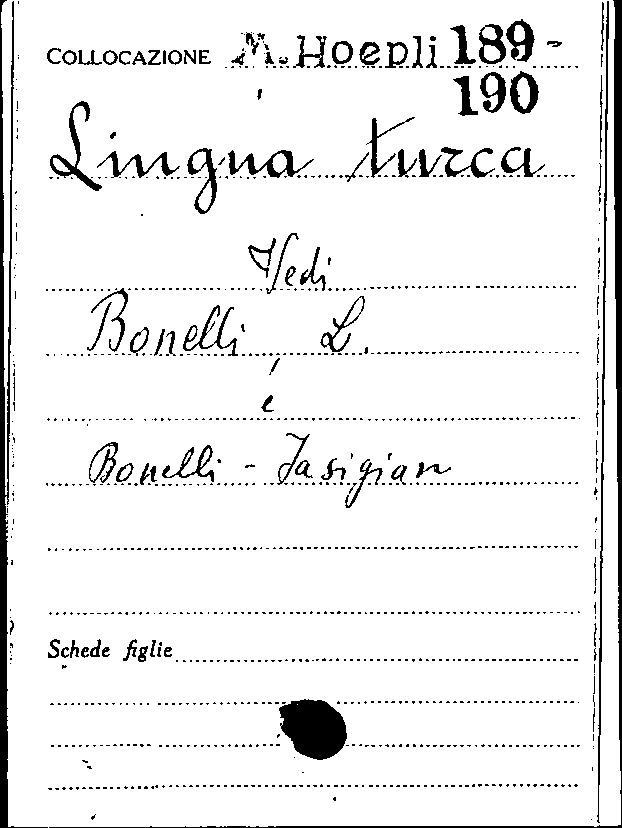 COLLOCAZIONE M. Hoepli 189-
190
Lingua turca
Vedi
Bonelli, L.
e
Bonelli - Jasigian
Schede figlie